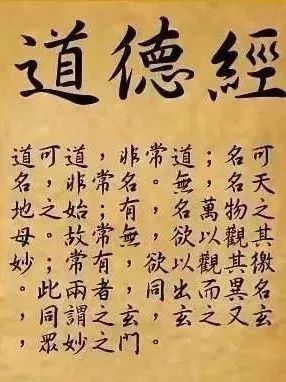 道德經
道可道，非常道；名可
名，非常名。無，名天
地之始；有，名萬物之
母。故常無，欲以觀其
妙；常有，欲以觀其徼
。此兩者，同出而異名
，同謂之玄，玄之又玄
，眾妙之門。